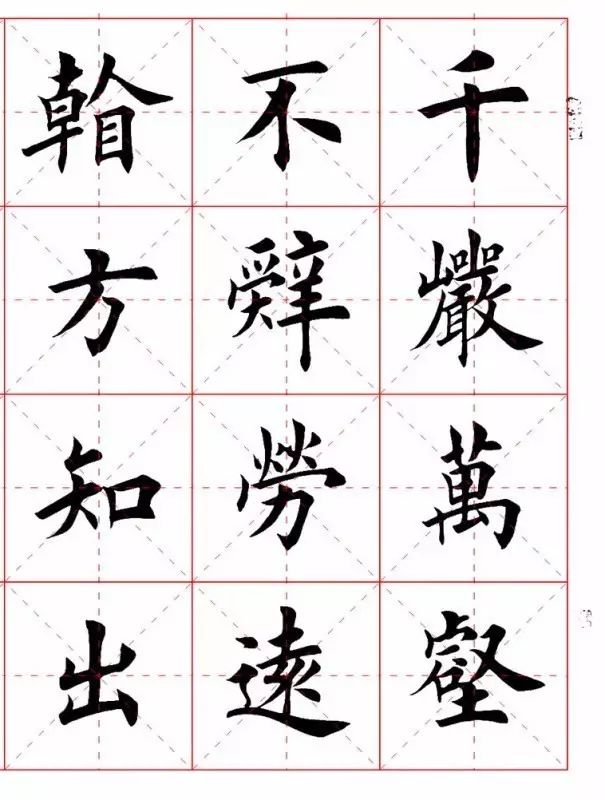 千巖萬壑
不辭勞遠
看方知出